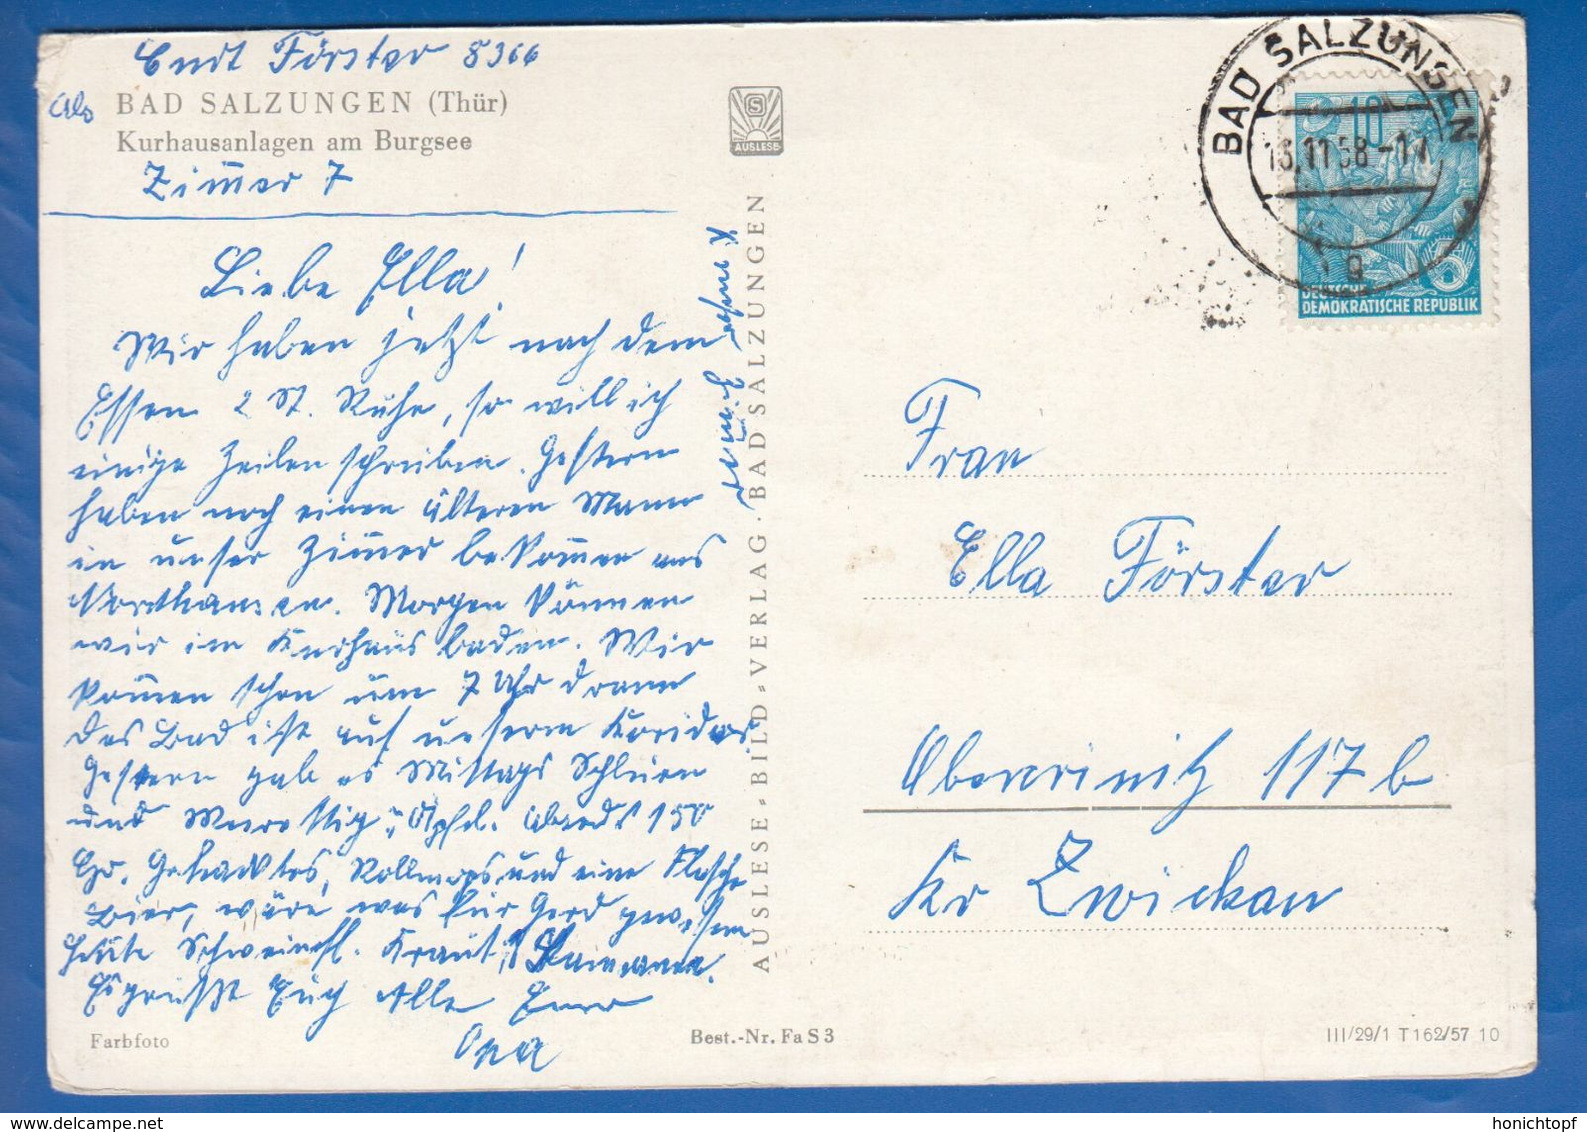 Förster 8366
BAD SALZUNGEN (Thür)
Kurhausanlagen am Burgsee
Zimmer 7
Liebe Ella!
Wir haben jetzt nach dem
Essen 2 St. Ruhe, so will ich
einige Zeilen schreiben. Gestern
haben noch einen älteren Mann
in unser Zimmer bekommen aus
Nordhausen. Morgen können
wir im Kurhaus baden. Wir
kommen schon um 7 Uhr dran
das Bad ist auf unserm Koridor
Gestern gab es Mittags
und Abends 150
Gr. Gehacktes, Rollmops und eine Flasche
Bier, wäre was für Gerd gewesen
Heute Schweinefl. Kraut
Es grüßt Euch Alle Euer
Opa
Farbfoto
AUSLESE
AUSLESE-BILD-VERLAG · BAD SALZUNGEN
Best.-Nr. Fa S 3
BAD SALZUNGEN
.11.58
g
10
DEUTSCHE
DEMOKRATISCHE REPUBLIK
Frau
Ella Förster
Obercrinitz 117 b
Kr Zwickau
III/29/1 T 162/57 10
honichtopf